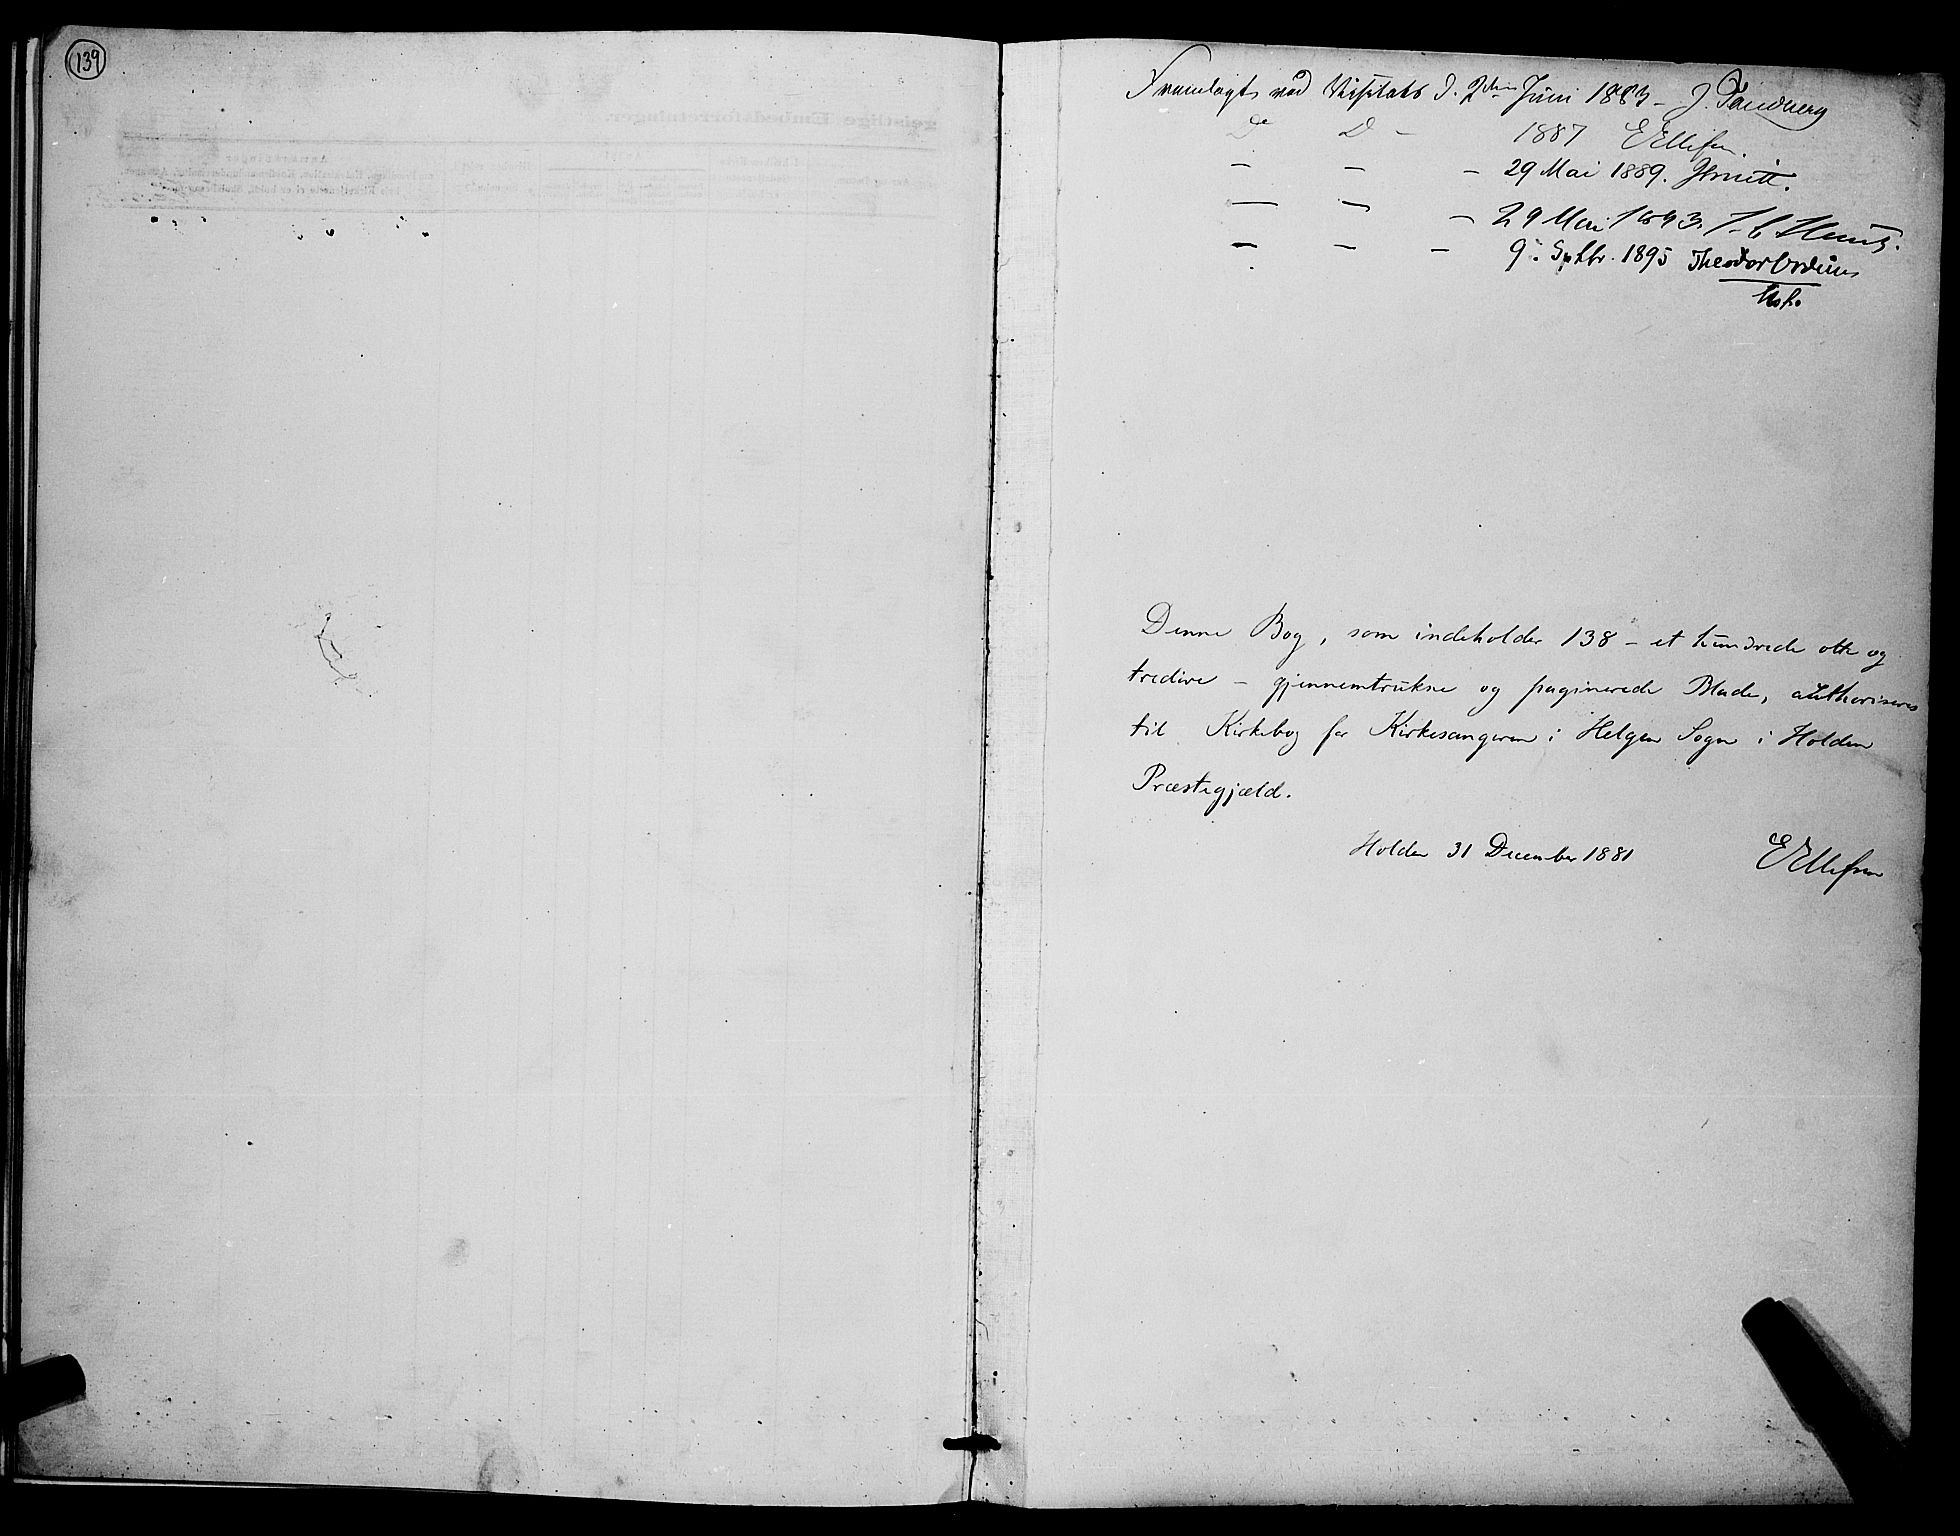 139
Fremlagt ved Visitats d. 2den Juni 1883 - J. Tandberg
Do Do - 1887 E Ellefsen.
- - - 29 Mai 1889.
- - - 29 Mai 1893.
- - - 9. Septbr. 1895 Theodor
Denne Bog, som indeholder 138 - et hundrede otte og
tredive - gjennemtrukne og paginerede Blade, authoriseres
til Kirkebog for Kirkesangeren i Helgen Sogn i Holden
Præstegjæld.
Holden 31 December 1881 E Ellefsen